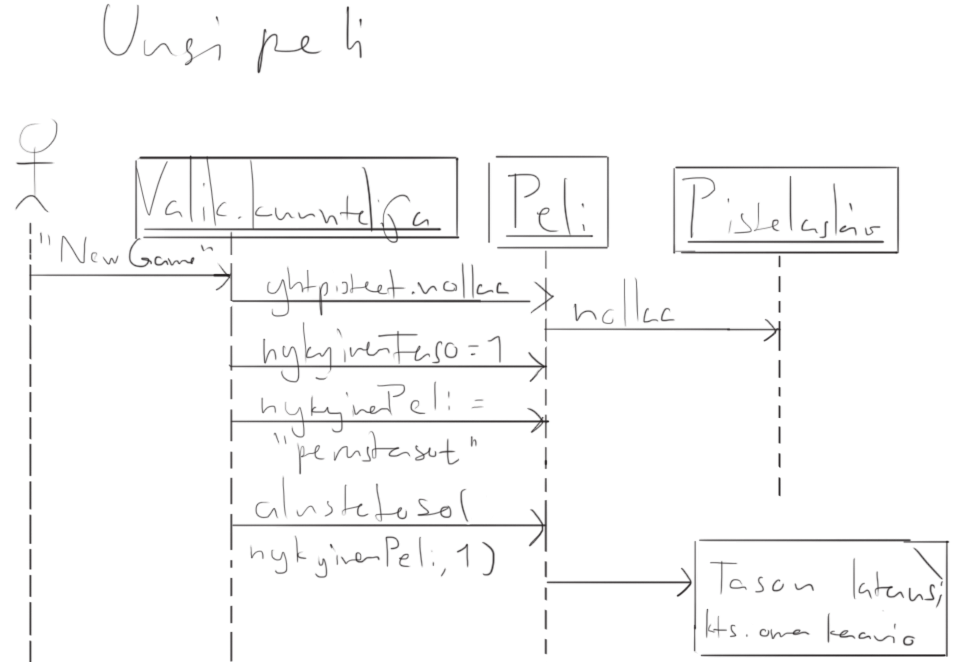 Uusi peli
Valik.kuuntelija
Peli
Pistelaskuri
"New Game"
yhtpisteet.nollaa
nollaa
nykyinenTaso=1
nykyinenPeli =
"perustasot"
alustataso(
nykyinenPeli, 1)
Tason lataus,
kts. oma kaavio